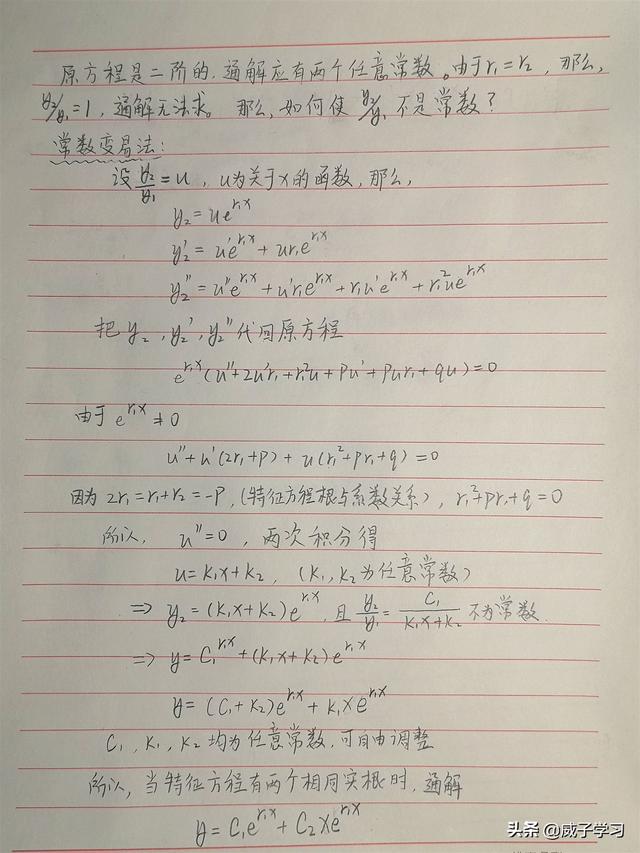 原方程是二阶的,通解应有两个任意常数。由于r₁=r₂,那么,
y₂/y₁=1,通解无法求。那么,如何使 y₂/y₁ 不是常数?
常数变易法:
设 y₂/y₁=u,u为关于x的函数,那么,
y₂=ue^{r₁x}
y₂'=u'e^{r₁x}+ur₁e^{r₁x}
y₂''=u''e^{r₁x}+u'r₁e^{r₁x}+r₁u'e^{r₁x}+r₁²ue^{r₁x}
把 y₂,y₂',y₂''代回原方程
e^{r₁x}(u''+2u'r₁+r₁²u+pu'+pur₁+qu)=0
由于 e^{r₁x}≠0
u''+u'(2r₁+p)+u(r₁²+pr₁+q)=0
因为 2r₁=r₁+r₂=-p,(特征方程根与系数关系),r₁²+pr₁+q=0
所以, u''=0,两次积分得
u=k₁x+k₂,(k₁,k₂为任意常数)
⇒ y₂=(k₁x+k₂)e^{r₁x},且 y₂/y₁=C₁/(k₁x+k₂) 不为常数.
⇒ y=C₁^{r₁x}+(k₁x+k₂)e^{r₁x}
y=(C₁+k₂)e^{r₁x}+k₁xe^{r₁x}
C₁,k₁,k₂均为任意常数,可自由调整
所以,当特征方程有两个相同实根时,通解
y=C₁e^{r₁x}+C₂xe^{r₁x}
头条@威子学习